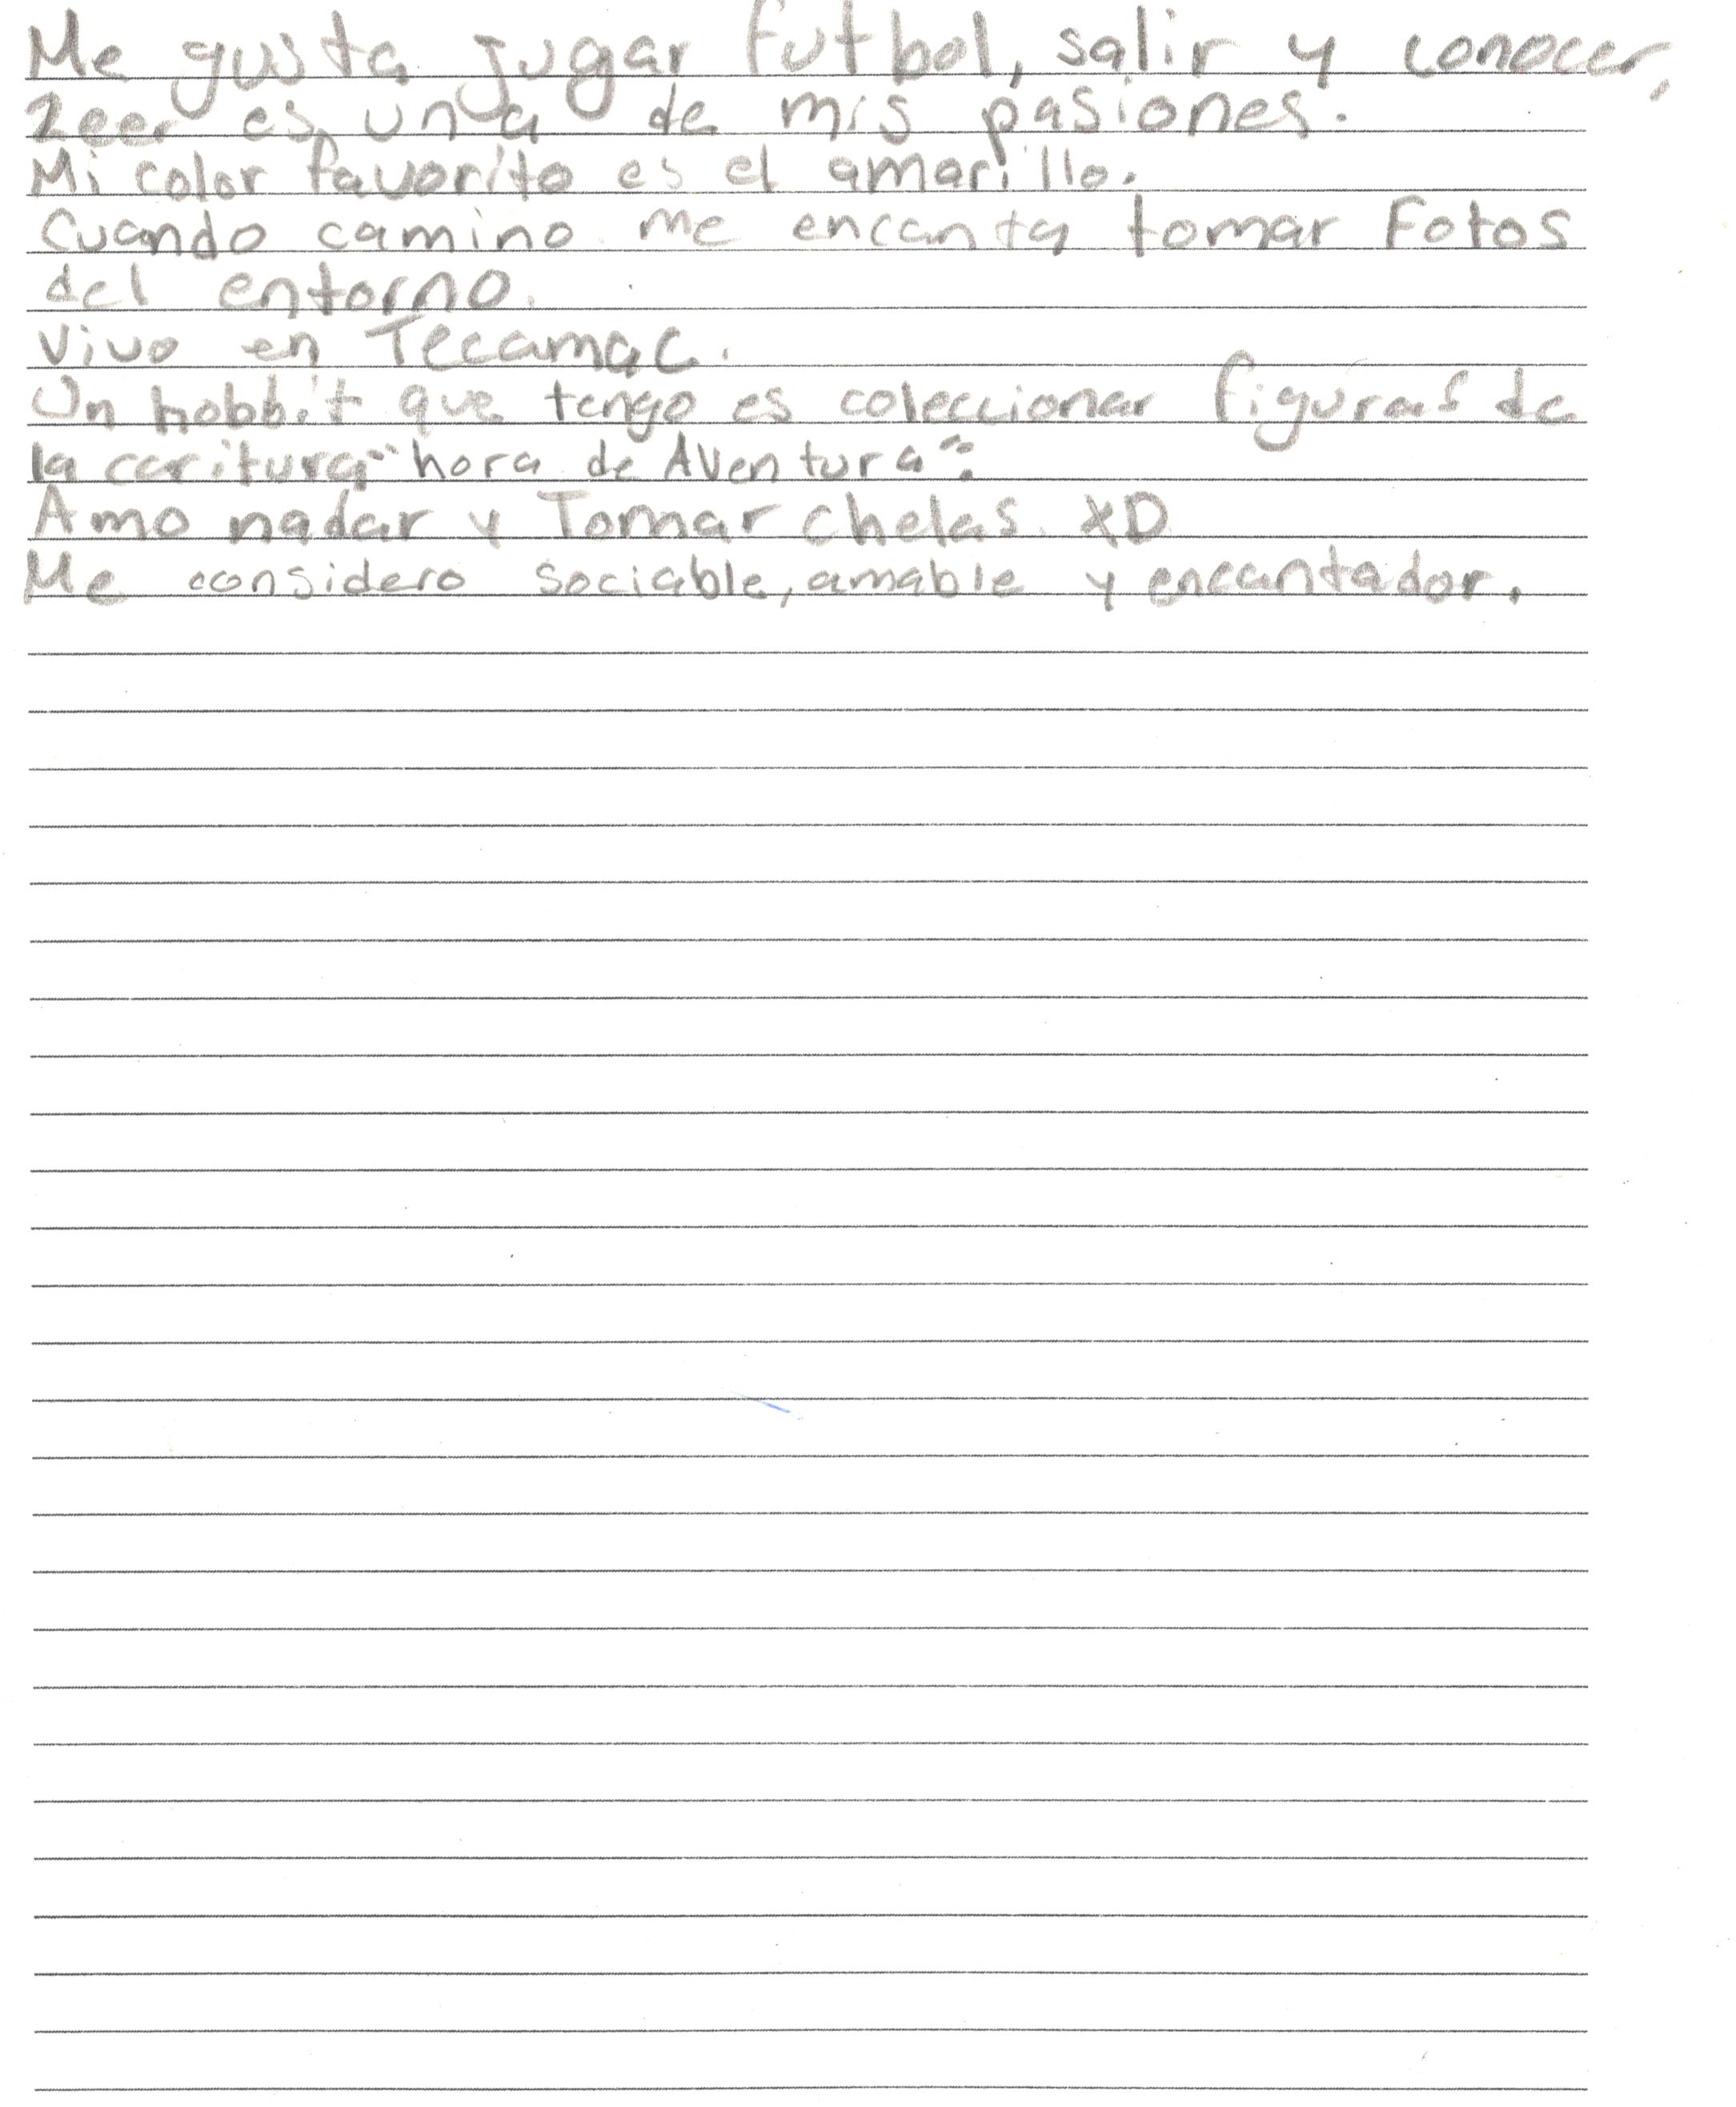 Me gusta jugar futbol, salir y conocer,
Leer es una de mis pasiones.
Mi color favorito es el amarillo.
Cuando camino me encanta tomar Fotos
del entorno.
Vivo en Tecamac.
Un hobbit que tengo es coleccionar figuras de
la caritura "hora de Aventura".
Amo nadar y Tomar chelas XD
Me considero sociable, amable y encantador.